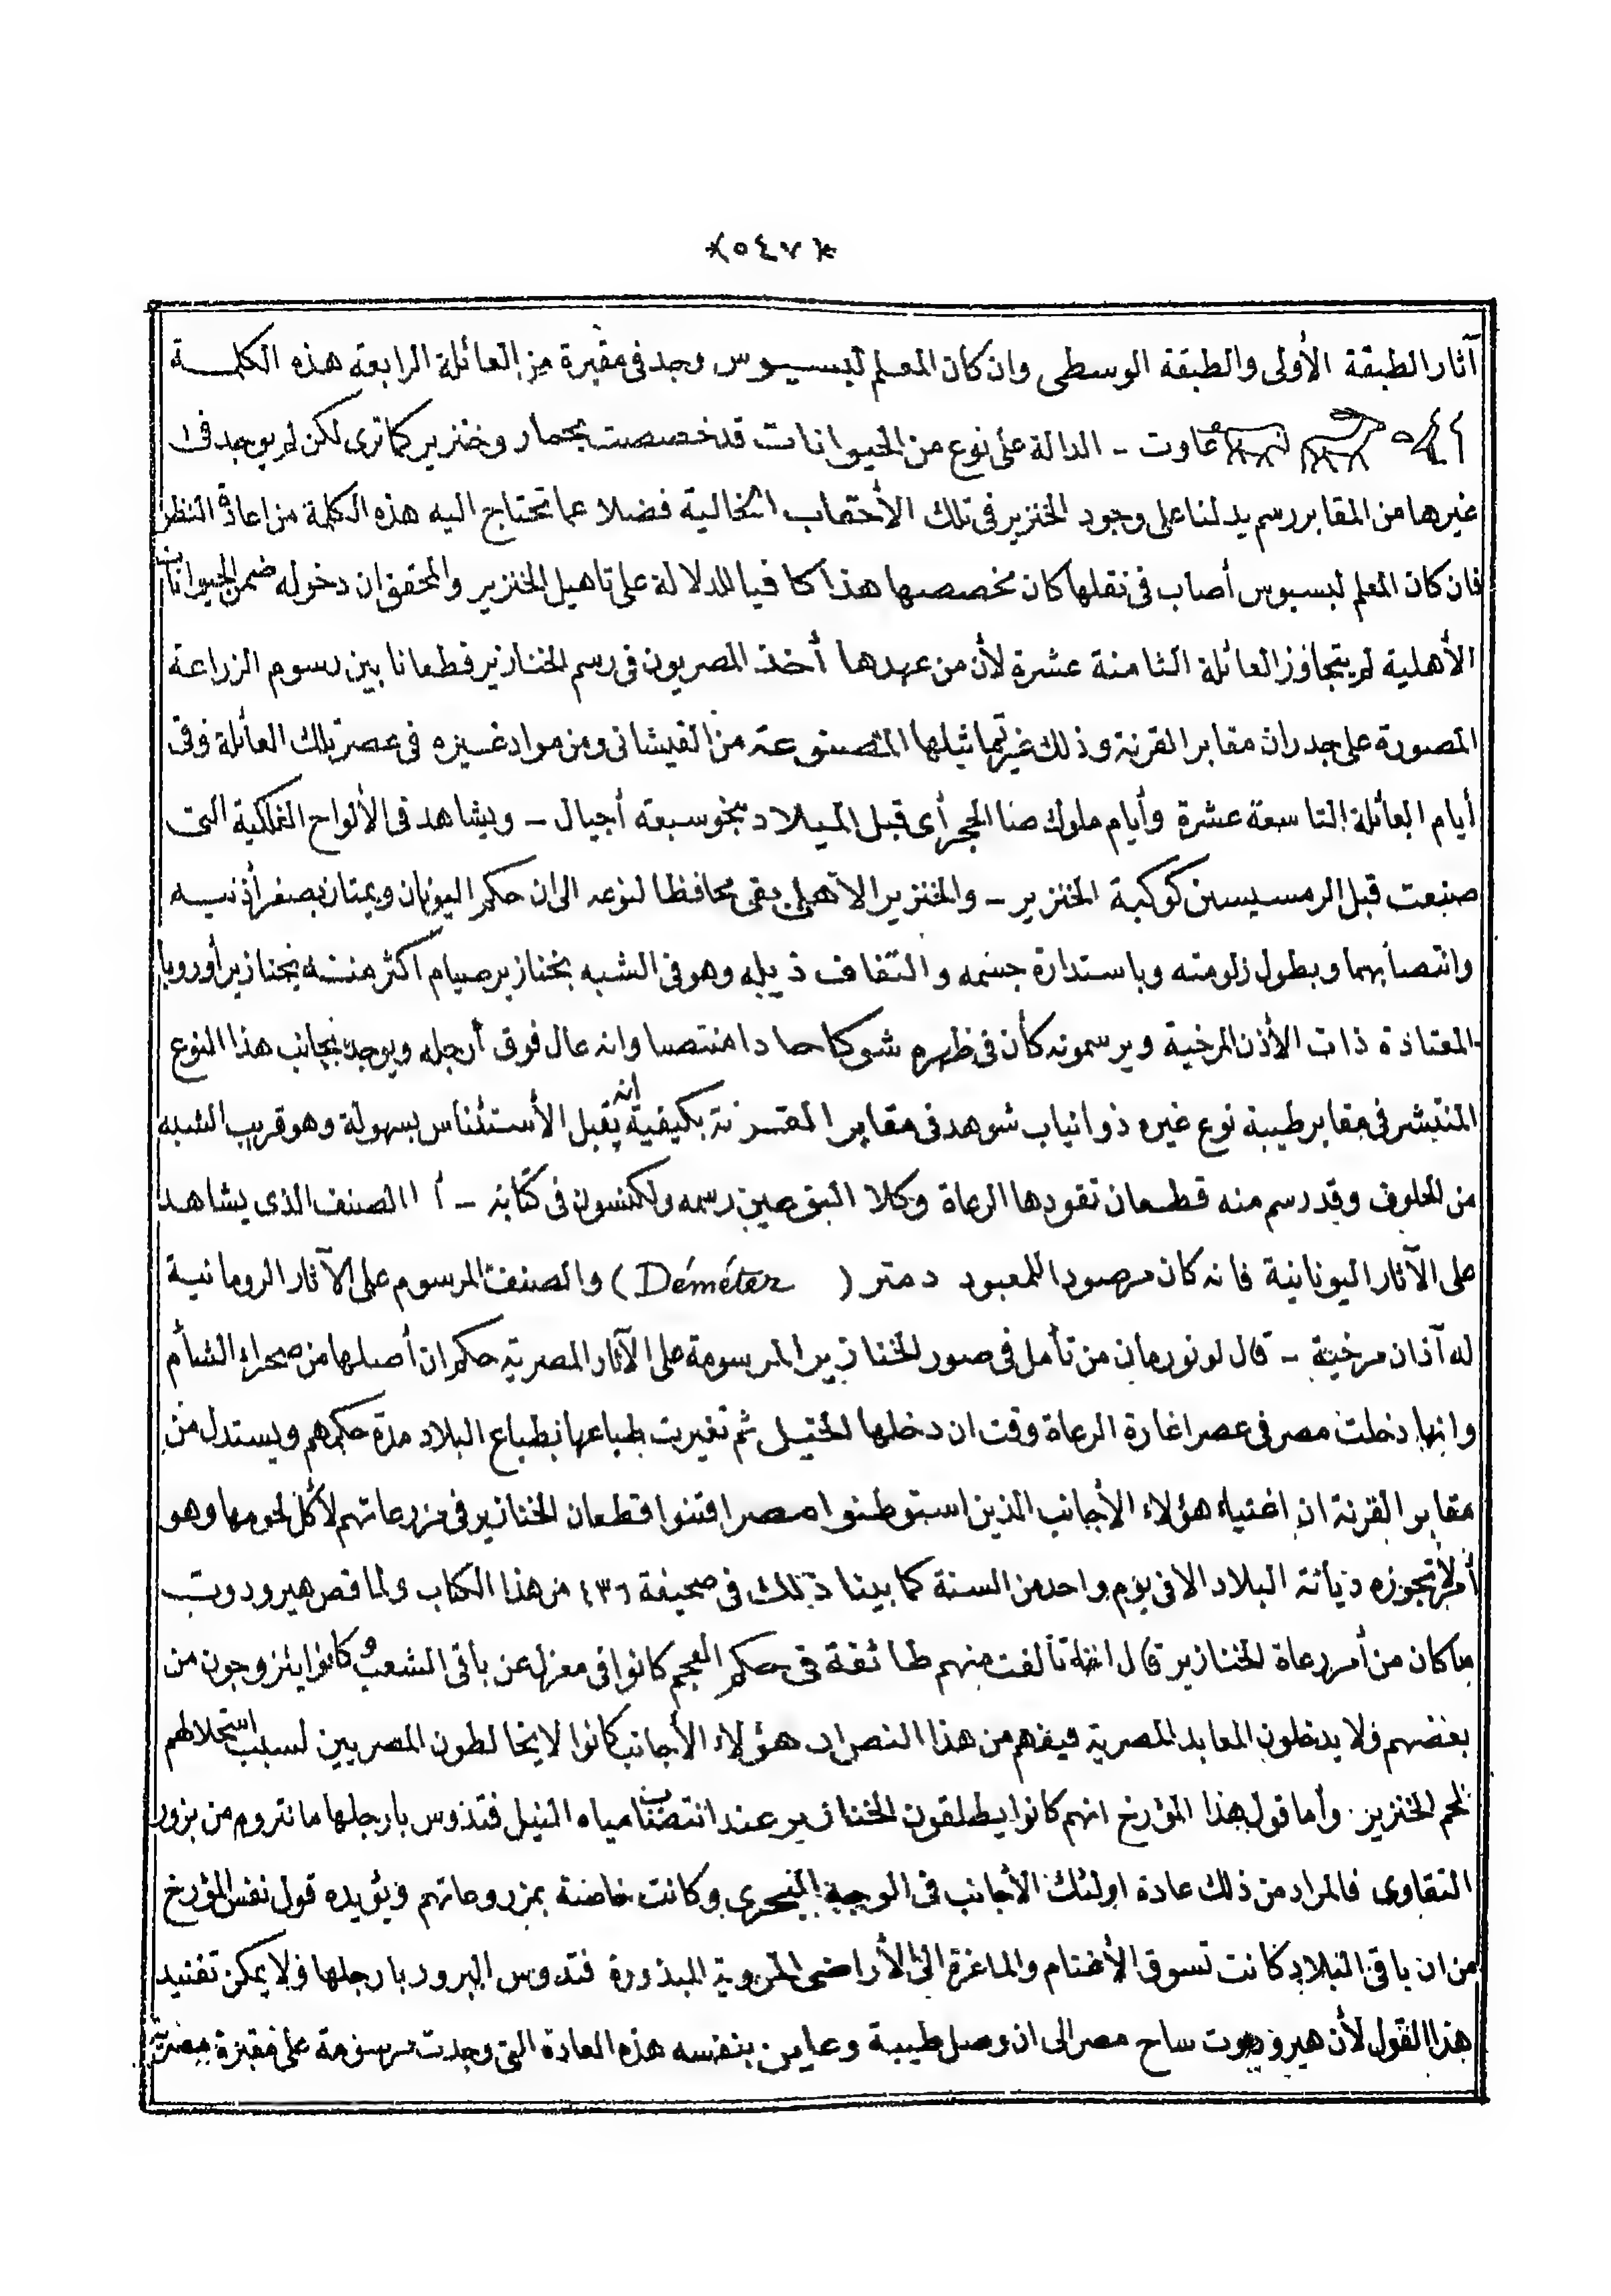 ﴿٥٤٧﴾
آثار الطبقة الأولى والطبقة الوسطى وان كان المعلم لبسيوس وجد فى مقبرة من العائلة الرابعة هذه الكلمة
عاوت - الدالة على نوع من الحيوانات قد خصصت بحمار وخنزير كما ترى لكن لم يوجد فى
غيرها من المقابر رسم يدلنا على وجود الخنزير فى تلك الأحقاب الخالية فضلا عما تحتاج اليه هذه الكلمة من اعادة النظر
فان كان المعلم لبسيوس أصاب فى نقلها كان مخصصها هذا كافيا للدلالة على تاهيل الخنزير والمحقق ان دخوله ضمن الحيوانات
الأهلية لم يتجاوز العائلة الثامنة عشرة لأن من عهدها أخذ المصريون فى رسم الخنازير قطعانا بين رسوم الزراعة
المصورة على جدران مقابر القرنة وذلك غير تماثيلها المصنوعة من القيشانى ومن مواد غيره فى عصر تلك العائلة وفى
أيام العائلة التاسعة عشرة وأيام ملوك صا الحجر أى قبل الميلاد بنحو سبعة أجيال - ويشاهد فى الألواح الفلكية التى
صنعت قبل الرمسيسين كوكبة الخنزير - والخنزير الأهلى بقى محافظا لنوعه الى ان حكم اليونان ويمتاز بصغر أذنيه
وانتصابهما وبطول زلومته وباستدارة جسمه والتفاف ذيله وهو فى الشبه بخنازير صيام اكثر منه بخنازير أوروبا
المعتادة ذات الأذن المرخية ويرسمونه كأن فى ظهره شوكا حادا منتصبا وانه عال فوق أرجله ويوجد بجانب هذا النوع
المنتشر فى مقابر طيبة نوع غيره ذو انياب شوهد فى مقابر القرنة بكيفية انه يقبل الأستئناس بسهولة وهو قريب الشبه
من الحلوف وقد رسم منه قطعان تقودها الرعاة وكلا النوعين رسمه ولكنسون فى كتابه - أما الصنف الذى يشاهد
على الآثار اليونانية فانه كان مرصودا للمعبود دمتر (Déméter) والصنف المرسوم على الآثار الرومانية
له آذان مرخية - قال لونورمان من تأمل فى صور الخنازير المرسومة على الآثار المصرية حكم ان أصلها من صحراء الشأم
وانها دخلت مصر فى عصر اغارة الرعاة وقت ان دخلها الخيل ثم تغيرت طباعها بطباع البلاد مدة حكمهم ويستدل من
مقابر القرنة ان اغنياء هؤلاء الأجانب الذين استوطنوا مصر اقتنوا قطعان الخنازير فى مزرعاتهم لأكل لحومها وهو
أمر لا تجوزه ديانة البلاد الا فى يوم واحد من السنة كما بينا ذلك فى صحيفة ٤٣٦ من هذا الكتاب ولما قص هيرودوت
ما كان من أمر رعاة الخنازير قال انه تألفت منهم طائفة فى حكم العجم كانوا فى معزل عن باقى الشعب وكانوا يتزوجون من
بعضهم ولا يدخلون المعابد المصرية فيفهم من هذا النص ان هؤلاء الأجانب كانوا لا يخالطون المصريين لسبب استحلالهم
لحم الخنزير. وأما قول هذا المؤرخ انهم كانوا يطلقون الخنازير عند انتضاب مياه النيل فتدوس بارجلها ما تروم من بزور
التقاوى فالمراد من ذلك عادة اولئك الأجانب فى الوجه البحرى وكانت خاصة بمزروعاتهم ويؤيده قول نفس المؤرخ
من ان باقى البلاد كانت تسوق الأغنام والماعزة الى الأراضى المروية المبذورة فتدوس البزور بارجلها ولا يمكن تفنيد
هذا القول لأن هيرودوت ساح مصر الى ان وصل طيبة وعاين بنفسه هذه العادة التى وجدت مرسومة على مقبرة مصرية